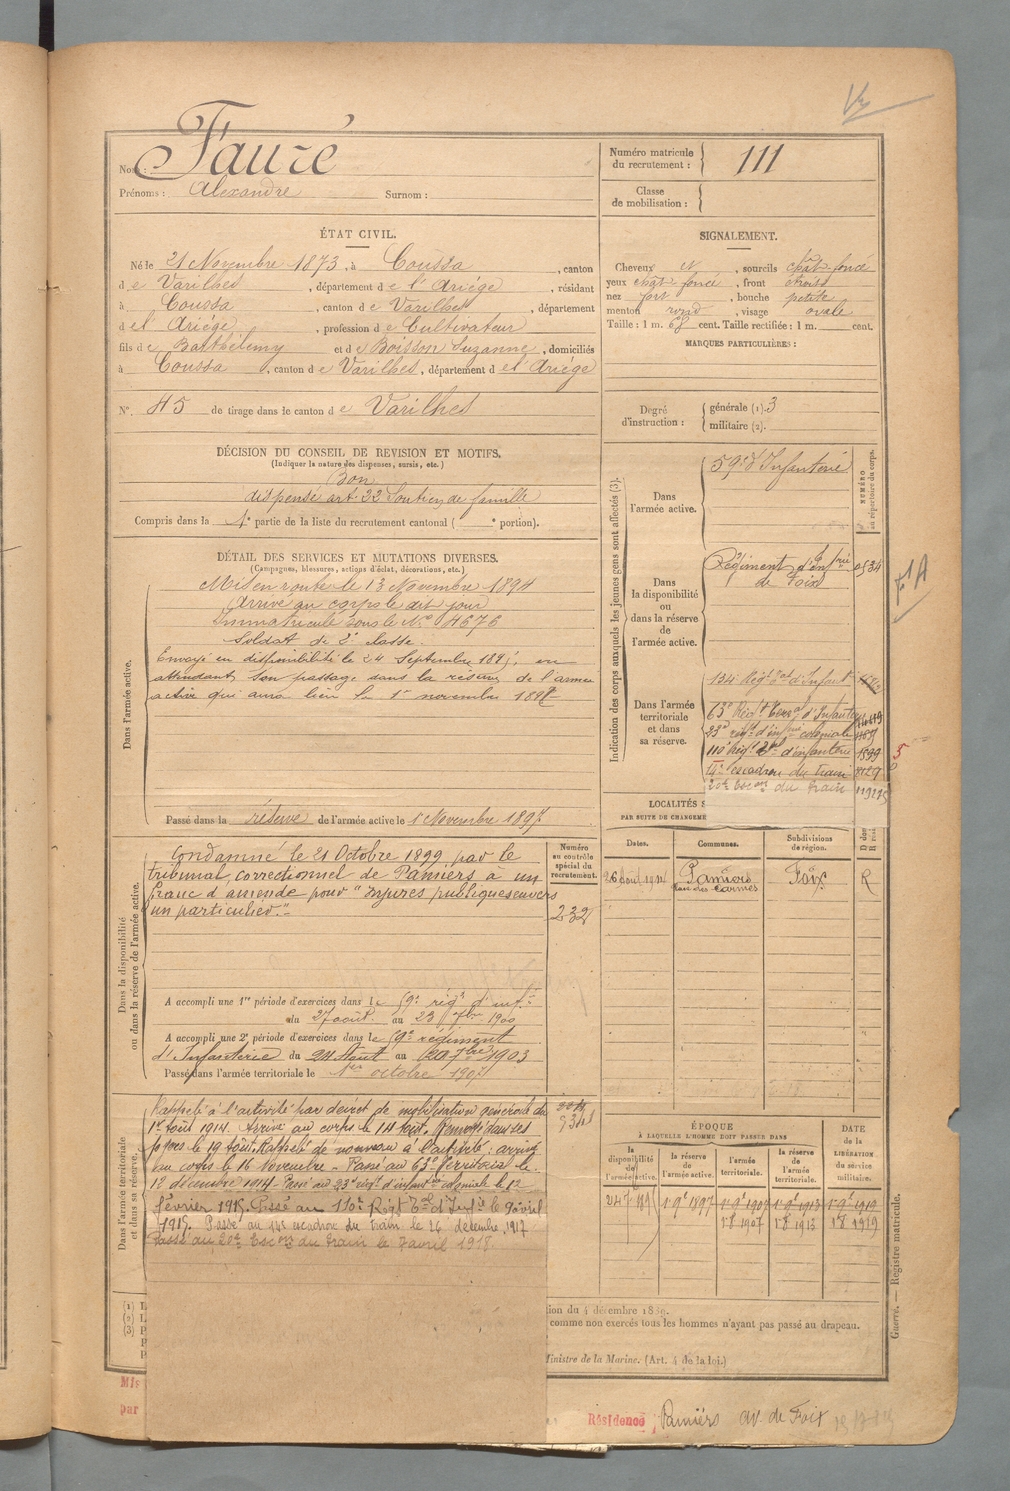 Nom : Fauré
Prénoms : Alexandre Surnom :
Numéro matricule du recrutement : 111
Classe de mobilisation :
ÉTAT CIVIL.
Né le 21 Novembre 1873, à Coussa, canton
de Varilhes, département de l'Ariége, résidant
à Coussa, canton de Varilhes, département
de l'Ariége, profession de Cultivateur
fils de Barthélemy et de Boisson Suzanne, domiciliés
à Coussa, canton de Varilhes, département de l'Ariége
N° 45 de tirage dans le canton de Varilhes
SIGNALEMENT.
Cheveux et, sourcils chât-foncé
yeux chât-foncé, front étroit
nez fort, bouche petite
menton rond, visage ovale
Taille : 1 m. 68 cent. Taille rectifiée : 1 m. cent.
MARQUES PARTICULIÈRES :
Degré d'instruction : générale (1). 3
militaire (2).
DÉCISION DU CONSEIL DE REVISION ET MOTIFS.
(Indiquer la nature des dispenses, sursis, etc.)
Bon
dispensé art. 22 Soutien de famille
Compris dans la 1e partie de la liste du recrutement cantonal ( e portion).
DÉTAIL DES SERVICES ET MUTATIONS DIVERSES.
(Campagnes, blessures, actions d'éclat, décorations, etc.)
Dans l'armée active.
Mis en route le 13 Novembre 1894
Arrivé au corps le dit jour
Immatriculé sous le N° 4676
Soldat de 2e classe.
Envoyé en disponibilité le 24 Septembre 1895, en
attendant son passage dans la réserve de l'armée
active qui aura lieu le 1er novembre 1897
Passé dans la réserve de l'armée active le 1 Novembre 1897
Indication des corps auxquels les jeunes gens sont affectés (3).
NUMÉRO au répertoire du corps.
Dans l'armée active.
59e d'Infanterie
Dans la disponibilité ou dans la réserve de l'armée active.
Régiment d'infrie
de Foix
0534
Dans l'armée territoriale et dans sa réserve.
134 Régt Tal d'Infant
63e Régt Terral d'Infantie
23e régt d'infrie coloniale
110 Régt Tal d'infanterie 1599
14e escadron du train 8127
20e Escon du train
LOCALITÉS S
PAR SUITE DE CHANGEME
Dates. Communes. Subdivisions de région.
26 Août 1921 Pamiers Foix R
rue des Carmes
Dans la disponibilité ou dans la réserve de l'armée active.
Numéro au contrôle spécial du recrutement.
232
Condamné le 21 Octobre 1899 par le
tribunal correctionnel de Pamiers à un
franc d'amende pour "injures publiques envers
un particulier."
A accompli une 1re période d'exercices dans le 59e régt d'inf.ie
du 27 août au 23 7bre 1900
A accompli une 2e période d'exercices dans le 59e régiment
d'Infanterie du 24 Août au 20 7bre 1903
Passé dans l'armée territoriale le 1er octobre 1907
Dans l'armée territoriale et dans sa réserve.
Rappelé à l'activité par décret de mobilisation générale du
1er Août 1914. Arrivé au corps le 14 Août. Renvoyé dans ses
foyers le 19 Août. Rappelé de nouveau à l'activité; arrivé
au corps le 16 Novembre - Passé au 63e Territorial le
12 décembre 1914 - Passé au 23e régt d'infantie coloniale le 12
février 1915. Passé au 110e Régt Tal d'Infie le 9 avril
1915. Passé au 14e escadron du Train le 26 décembre 1917
Passé au 20e Escon du Train le 7 avril 1918.
ÉPOQUE
A LAQUELLE L'HOMME DOIT PASSER DANS
la disponibilité de l'armée active. la réserve de l'armée active. l'armée territoriale. la réserve de l'armée territoriale.
DATE de la LIBÉRATION du service militaire.
1 9e 1897 1 9e 1907 1 9e 1913 1 9e 1919
1 8 1907 1 8 1913 1 8 1919
(1) L
(2) L
(3) P
ion du 4 décembre 1889.
comme non exercés tous les hommes n'ayant pas passé au drapeau.
Ministre de la Marine. (Art. 4 de la loi.)
Guerre. — Registre matricule.
Mis
par
Résidence Pamiers av. de Foix